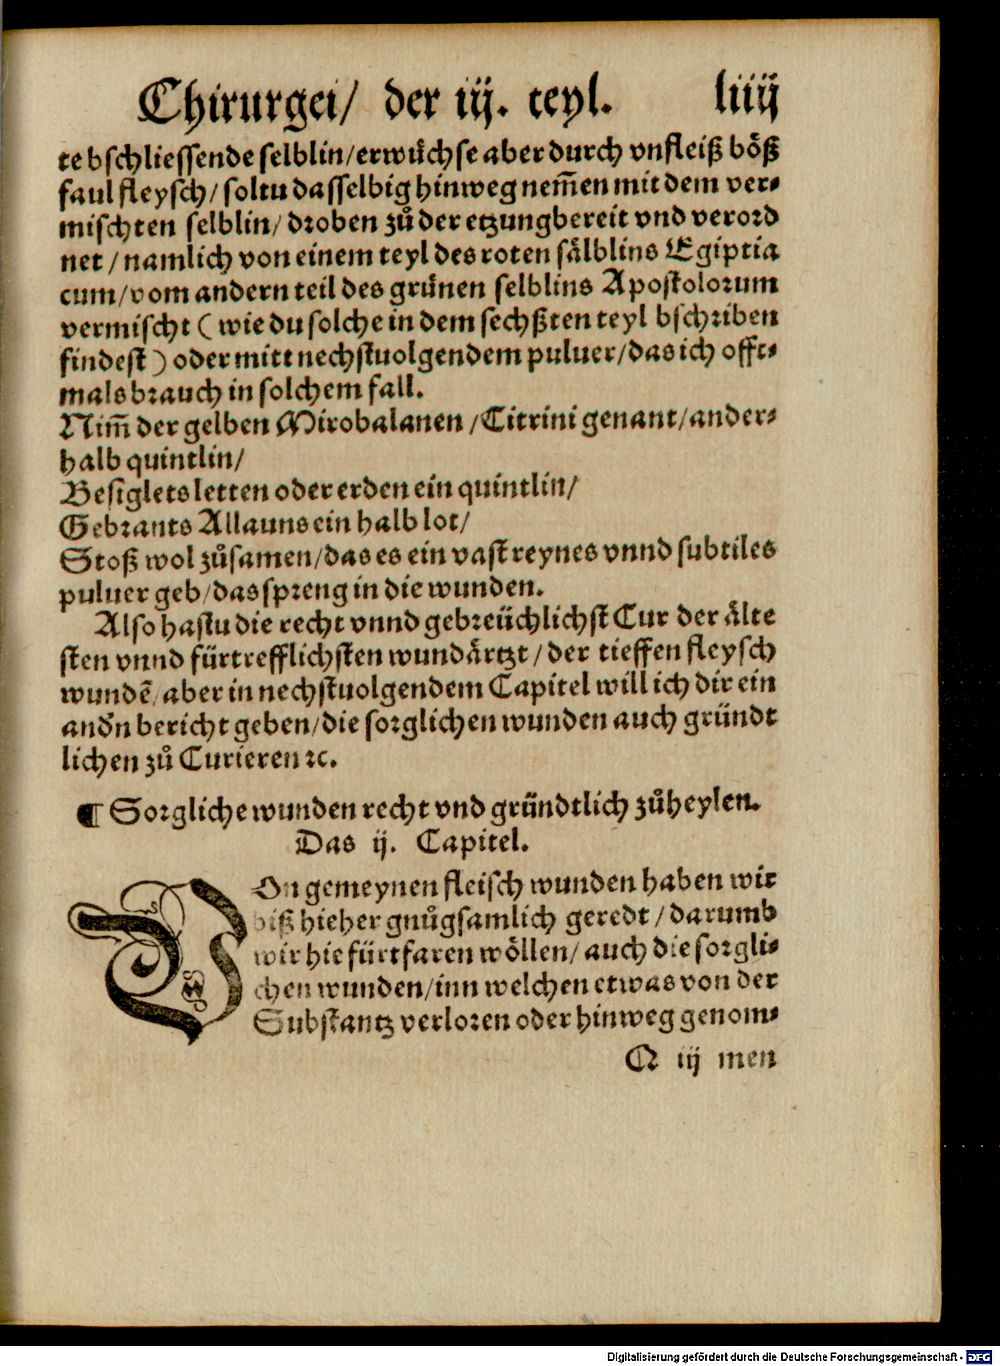 Chirurgei/ der iij. teyl. liiij
te bschliessende selblin/erwüchse aber durch vnfleiß böß
faul fleysch/ soltu dasselbig hinweg nem̃en mit dem ver-
mischten selblin/ droben zů der etzung bereit vnd verord
net/ namlich von einem teyl des roten sälblins Egiptia
cum/ vom andern teil des grünen selblins Apostolorum
vermischt (wie du solche in dem sechßten teyl bschriben
findest) oder mitt nechstuolgendem puluer/ das ich offt-
mals brauch in solchem fall.
Nim̃ der gelben Mirobalanen/ Citrini genant/ ander-
halb quintlin/
Besiglets letten oder erden ein quintlin/
Gebrants Allauns ein halb lot/
Stoß wol zůsamen/ das es ein vast reynes vnnd subtiles
puluer geb/ das spreng in die wunden.
Also hastu die recht vnnd gebreüchlichst Cur der älte
sten vnnd fürtrefflichsten wundärtzt/ der tieffen fleysch
wundẽ/ aber in nechstuolgendem Capitel will ich dir ein
andn̄ bericht geben/ die sorglichen wunden auch gründt
lichen zů Curieren ꝛc.
¶ Sorgliche wunden recht vnd gründtlich zůheylen.
Das ij. Capitel.
VOn gemeynen fleisch wunden haben wir
biß hieher gnůgsamlich geredt/ darumb
wir hie fürtfaren wöllen/ auch die sorgli-
chen wunden/ inn welchen etwas von der
Substantz verloren oder hinweg genom-
Q iij men
Digitalisierung gefördert durch die Deutsche Forschungsgemeinschaft - DFG